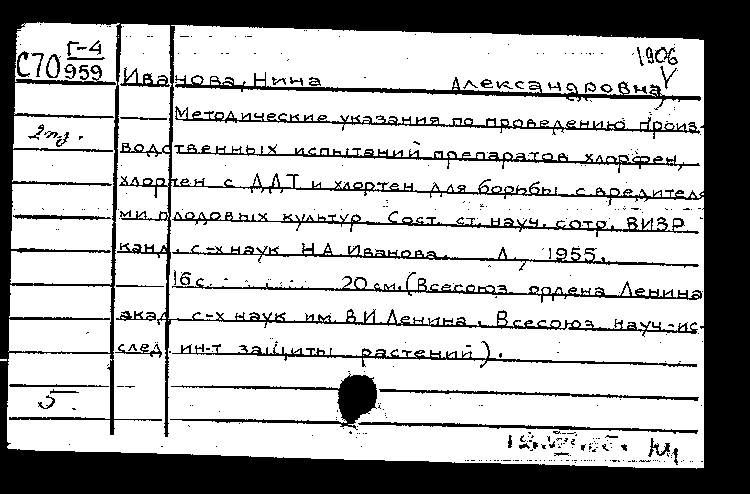 1906
С70 Г-4
959
Иванова, Нина Александровна
Методические указания по проведению произ-
2 пз.
водственных испытаний препаратов хлорфен,
хлортен с ДДТ и хлортен для борьбы с вредителя
ми плодовых культур. Сост. ст. науч. сотр. ВИЗР
канд. с-х наук Н.А. Иванова. Л., 1955.
16 с. 20 см. (Всесоюз. ордена Ленина
акад. с-х наук им. В.И. Ленина. Всесоюз. науч.-ис-
след. ин-т защиты растений).
5.